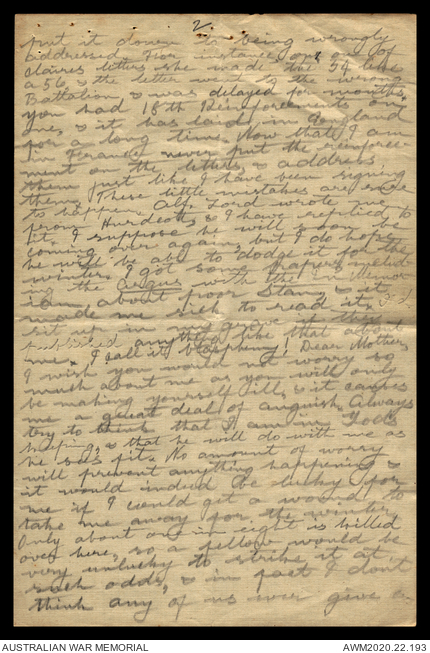 2.
put it down to being wrongly
addressed. For instance, on one of
Claires letters she made the 54 like
a 56 & the letter went to the wrong
Battalion & was delayed for months.
you had 18th Reinforcements on
one, & it has laid in England
for a long time. Now that I am
in France never put the reinforce-
ment on the letters, & address
them just like I have been signing
them. These little mistakes are sure
to happen. Alf. Lord wrote me
from Hurdcott, & I have replied to
it. I suppose he will soon be
coming over again, but I do hope
he will be able to dodge it for the
winter. I got some papers includ-
ing the Argus with the In Memor-
iam about poor Stan, & it
made me sick to read it. I'd
sit up in my grave if they
published anything like that about
me. I call it blasphemy! Dear Mother,
I wish you would not worry so
much about me as you will only
be making yourself ill, & it causes
me a great deal of anguish. Always
try to think that I am in God's
keeping, & that he will do with me as
he sees fit. No amount of worry
will prevent anything happening &
it would indeed be lucky for
me if I could get a wound to
take me away for the winter.
Only about one in eight is killed
over here, so a fellow would be
very unlucky to strike it at
such odds, & in fact I dont
think any of us ever give a
AUSTRALIAN WAR MEMORIAL
AWM2020.22.193